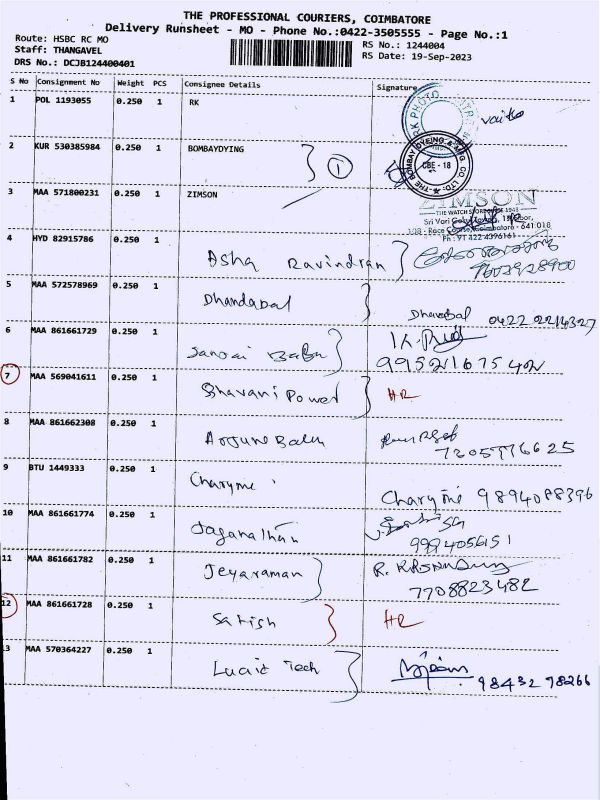 THE PROFESSIONAL COURIERS, COIMBATORE
Delivery Runsheet - MO - Phone No.:0422-3505555 - Page No.:1
Route: HSBC RC MO
RS No.: 1244004
Staff: THANGAVEL
RS Date: 19-Sep-2023
DRS No.: DCJB124400401
S No Consignment No Weight PCS Consignee Details Signature
1 POL 1193055 0.250 1 RK
2 KUR 530385984 0.250 1 BOMBAYDYING 1
THE BOMBAY DYEING & MFG CO. LTD.
CBE - 18
3 MAA 571800231 0.250 1 ZIMSON
ZIMSON
THE WATCH STORE SINCE 1948
Coimbatore - 641 018
Ph : 91 422 4396161
4 HYD 82915786 0.250 1 Asha Ravindran
5 MAA 572578969 0.250 1 Dhandabal Dhandabal 0422 2214327
6 MAA 861661729 0.250 1 Babu
7 MAA 569041611 0.250 1 Bhavani Power HR
8 MAA 861662308 0.250 1
9 BTU 1449333 0.250 1 Charyme Charyme 9894088396
10 MAA 861661774 0.250 1 Jaganathan
11 MAA 861661782 0.250 1 Jeyaraman R.
7708823482
12 MAA 861661728 0.250 1 Satish HR
13 MAA 570364227 0.250 1 Lucid Tech
98432 98266